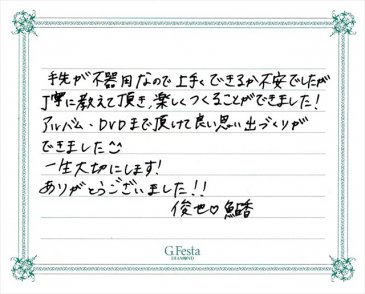 手先が不器用なので上手くできるか不安でしたが
丁寧に教えて頂き、楽しくつくることができました!
アルバム・DVDまで頂けて良い思い出づくりが
できました
一生大切にします!
ありがとうございました!!
俊也♡鮎香
G.Festa
DIAMOND